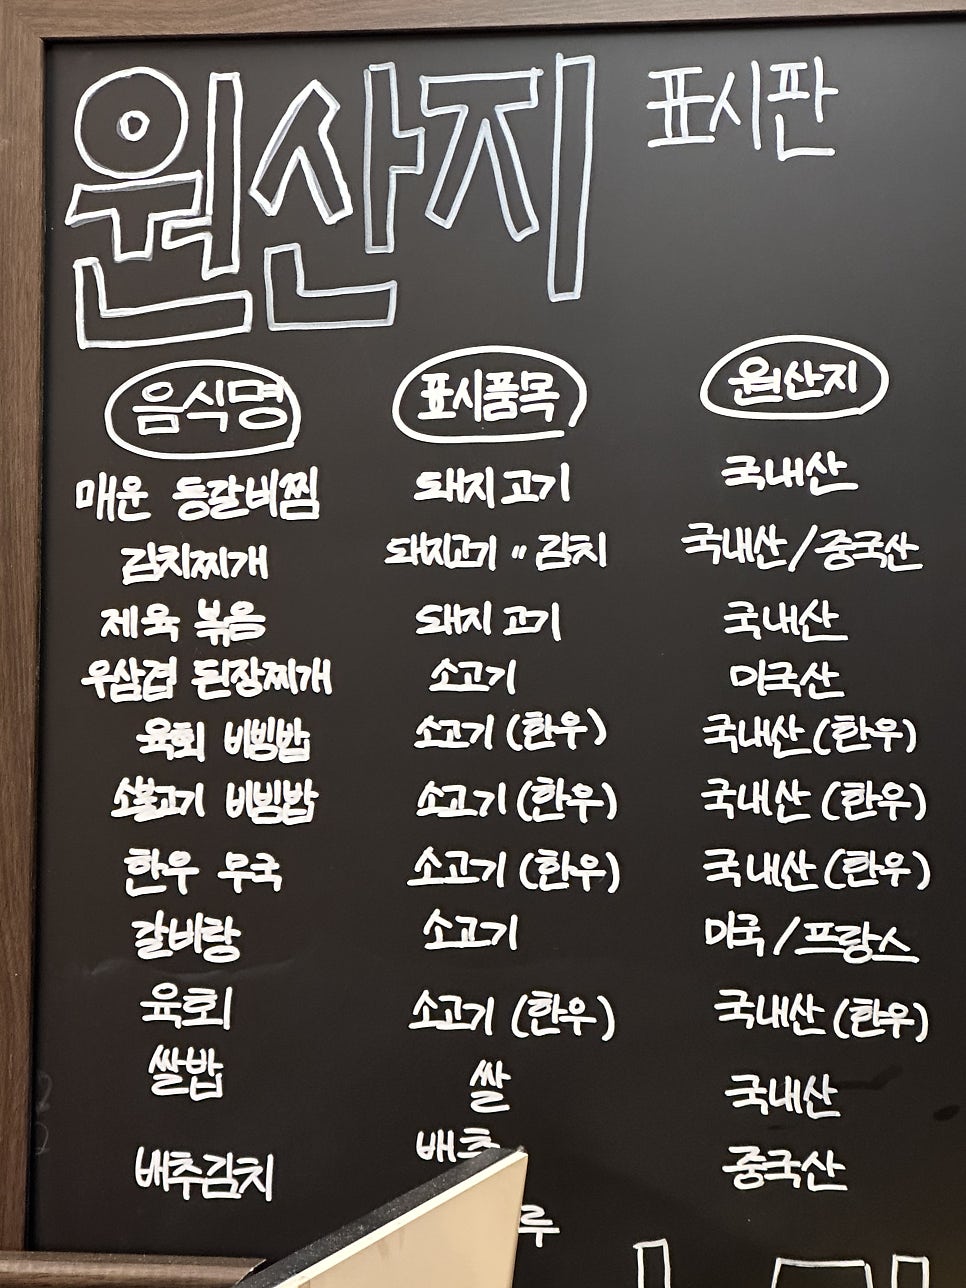 원산지 표시판
음식명 표시품목 원산지
매운 등갈비찜 돼지고기 국내산
김치찌개 돼지고기 " 김치 국내산/중국산
제육 볶음 돼지고기 국내산
우삼겹 된장찌개 소고기 미국산
육회 비빙밥 소고기 (한우) 국내산 (한우)
소불고기 비빔밥 소고기 (한우) 국내산 (한우)
한우 무국 소고기 (한우) 국내산 (한우)
갈비탕 소고기 미국/프랑스
육회 소고기 (한우) 국내산 (한우)
쌀밥 쌀 국내산
배추김치 배추 중국산
루